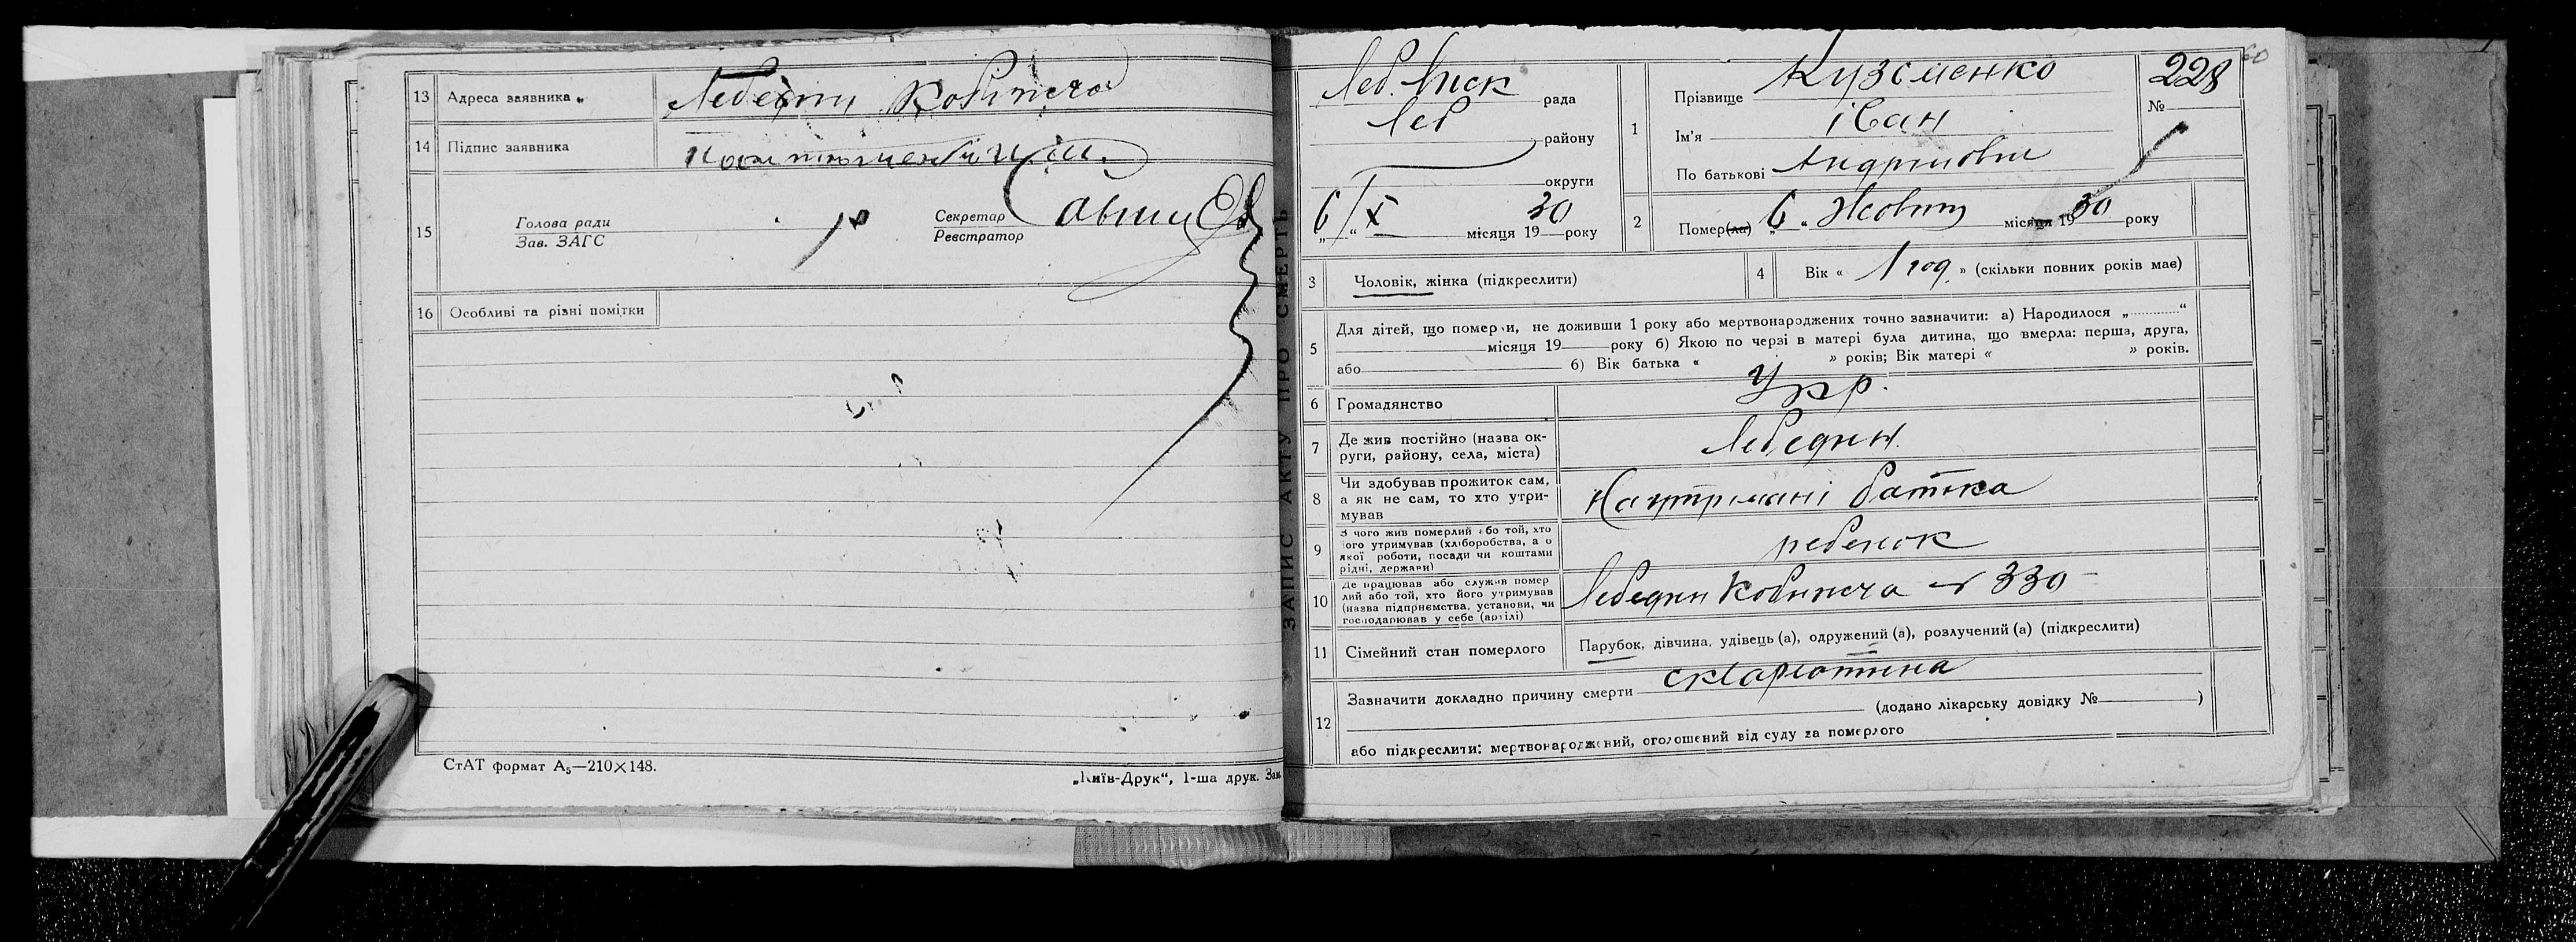 13 Адреса заявника
14 Підпис заявника
15 Голова ради
Зав. ЗАГС
Секретар
Реєстратор
16 Особливі та різні помітки
СтАТ формат А5—210×148.
„Київ-Друк“, 1-ша друк. Зам.
ЗАПИС АКТУ ПРО СМЕРТЬ
60
Леб. рада
Леб району
округи
6/X місяця 1930 року
1 Прізвище Кузсменко
Ім'я іван
По батькові
№ 228
2 Помер(ла) „6“ місяця 1930 року
3 Чоловік, жінка (підкреслити)
4 Вік « 1 год. » (скільки повних років має)
5 Для дітей, що померли, не доживши 1 року або мертвонароджених точно зазначити: а) Народилося „..........“
місяця 19 року б) Якою по черзі в матері була дитина, що вмерла: перша, друга,
або б) Вік батька « » років; Вік матері « » років.
6 Громадянство
7 Де жив постійно (назва ок-
руги, району, села, міста) Лебедин
8 Чи здобував прожиток сам,
а як не сам, то хто утри-
мував На утрімані батька
9 З чого жив померлий або той, хто
його утримував (хліборобства, а о
якої роботи, посади чи коштами
рідні, держави) ребенок
10 Де працював або служив помер
лий або той, хто його утримував
(назва підприємства, установи, чи
господарював у себе (артілі) Лебедин 330
11 Сімейний стан померлого Парубок, дівчина, удівець (а), одружений (а), розлучений (а) (підкреслити)
12 Зазначити докладно причину смерти
(додано лікарську довідку № )
або підкреслити: мертвонароджений, оголошений від суду за померлого